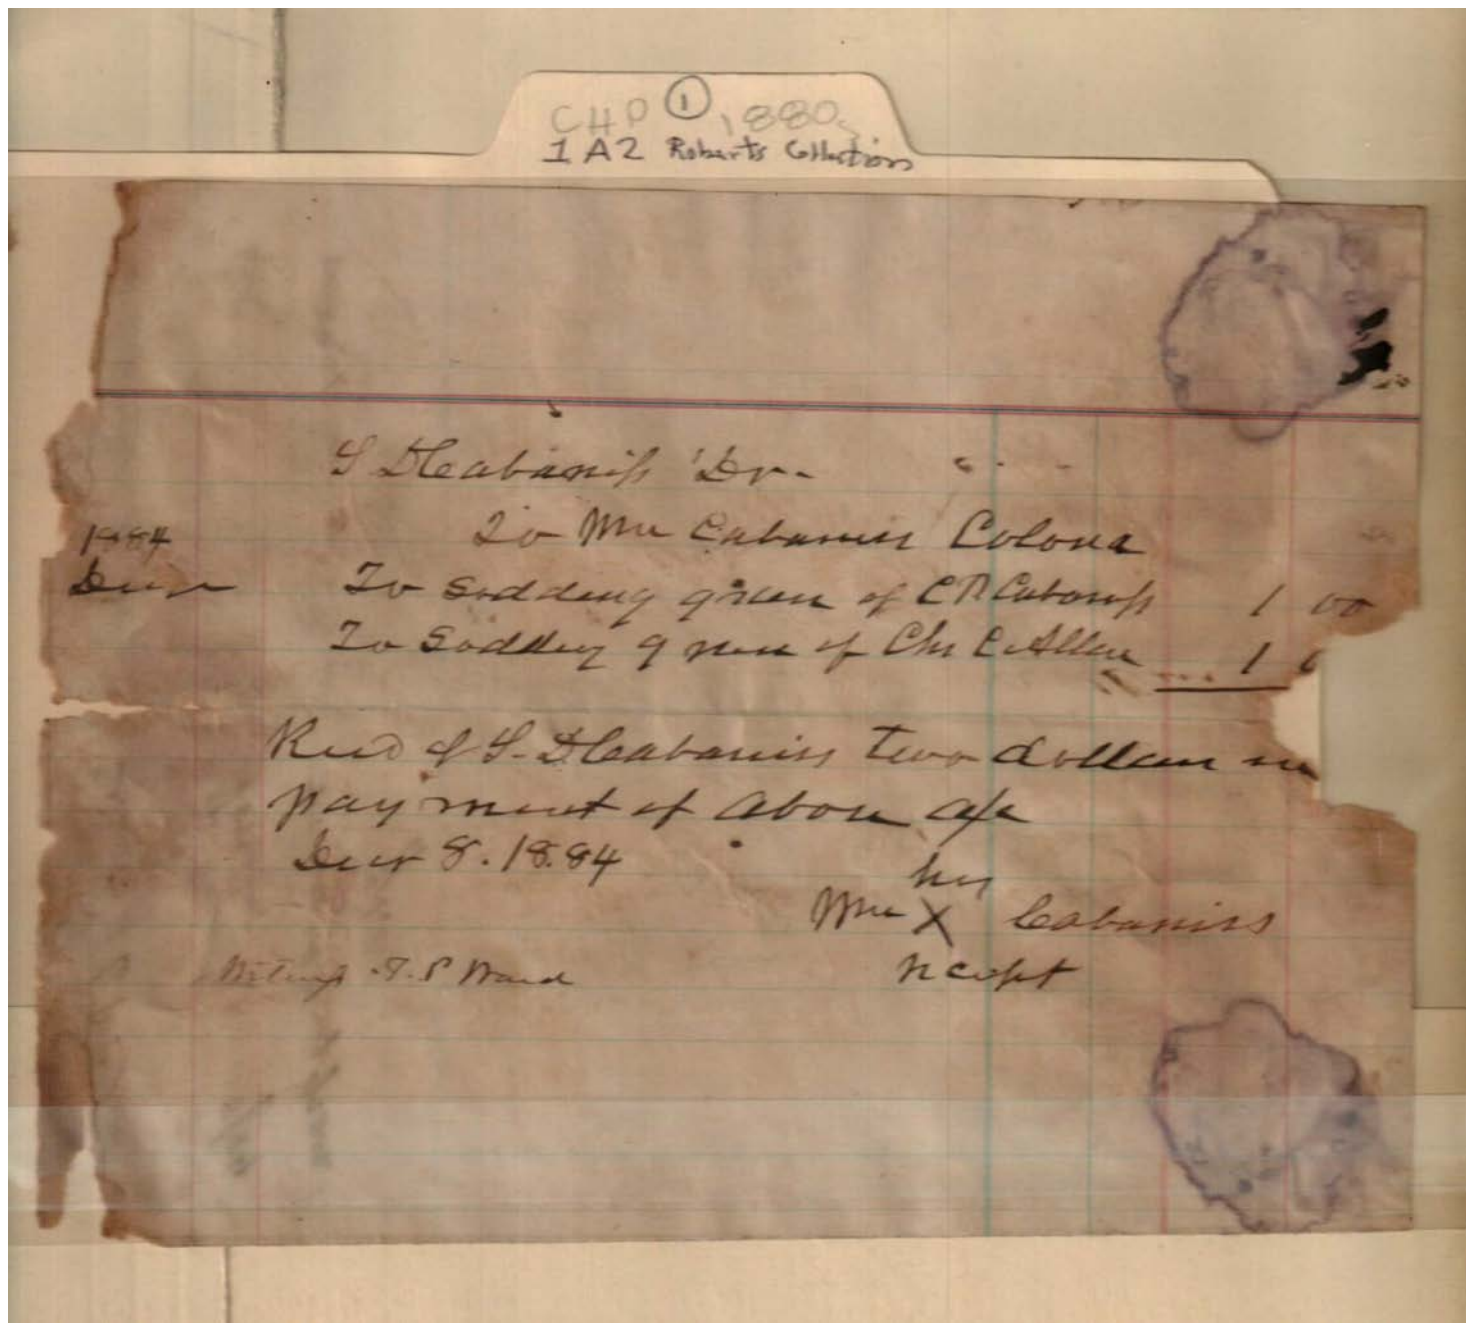 CHP 1 1880s
1A2 Roberts Collection
S D Cabaniss Dr-
To Wm Cabaniss Colored
1884
Decr To Sodding grave of C P Cabaniss 1 00
To Sodding grave of Chs C Allen 1 0
Recd of S. D Cabaniss two dollars in
payment of above a/c
Decr 8. 1884
his
Wm X Cabaniss
Witness T. S Ward